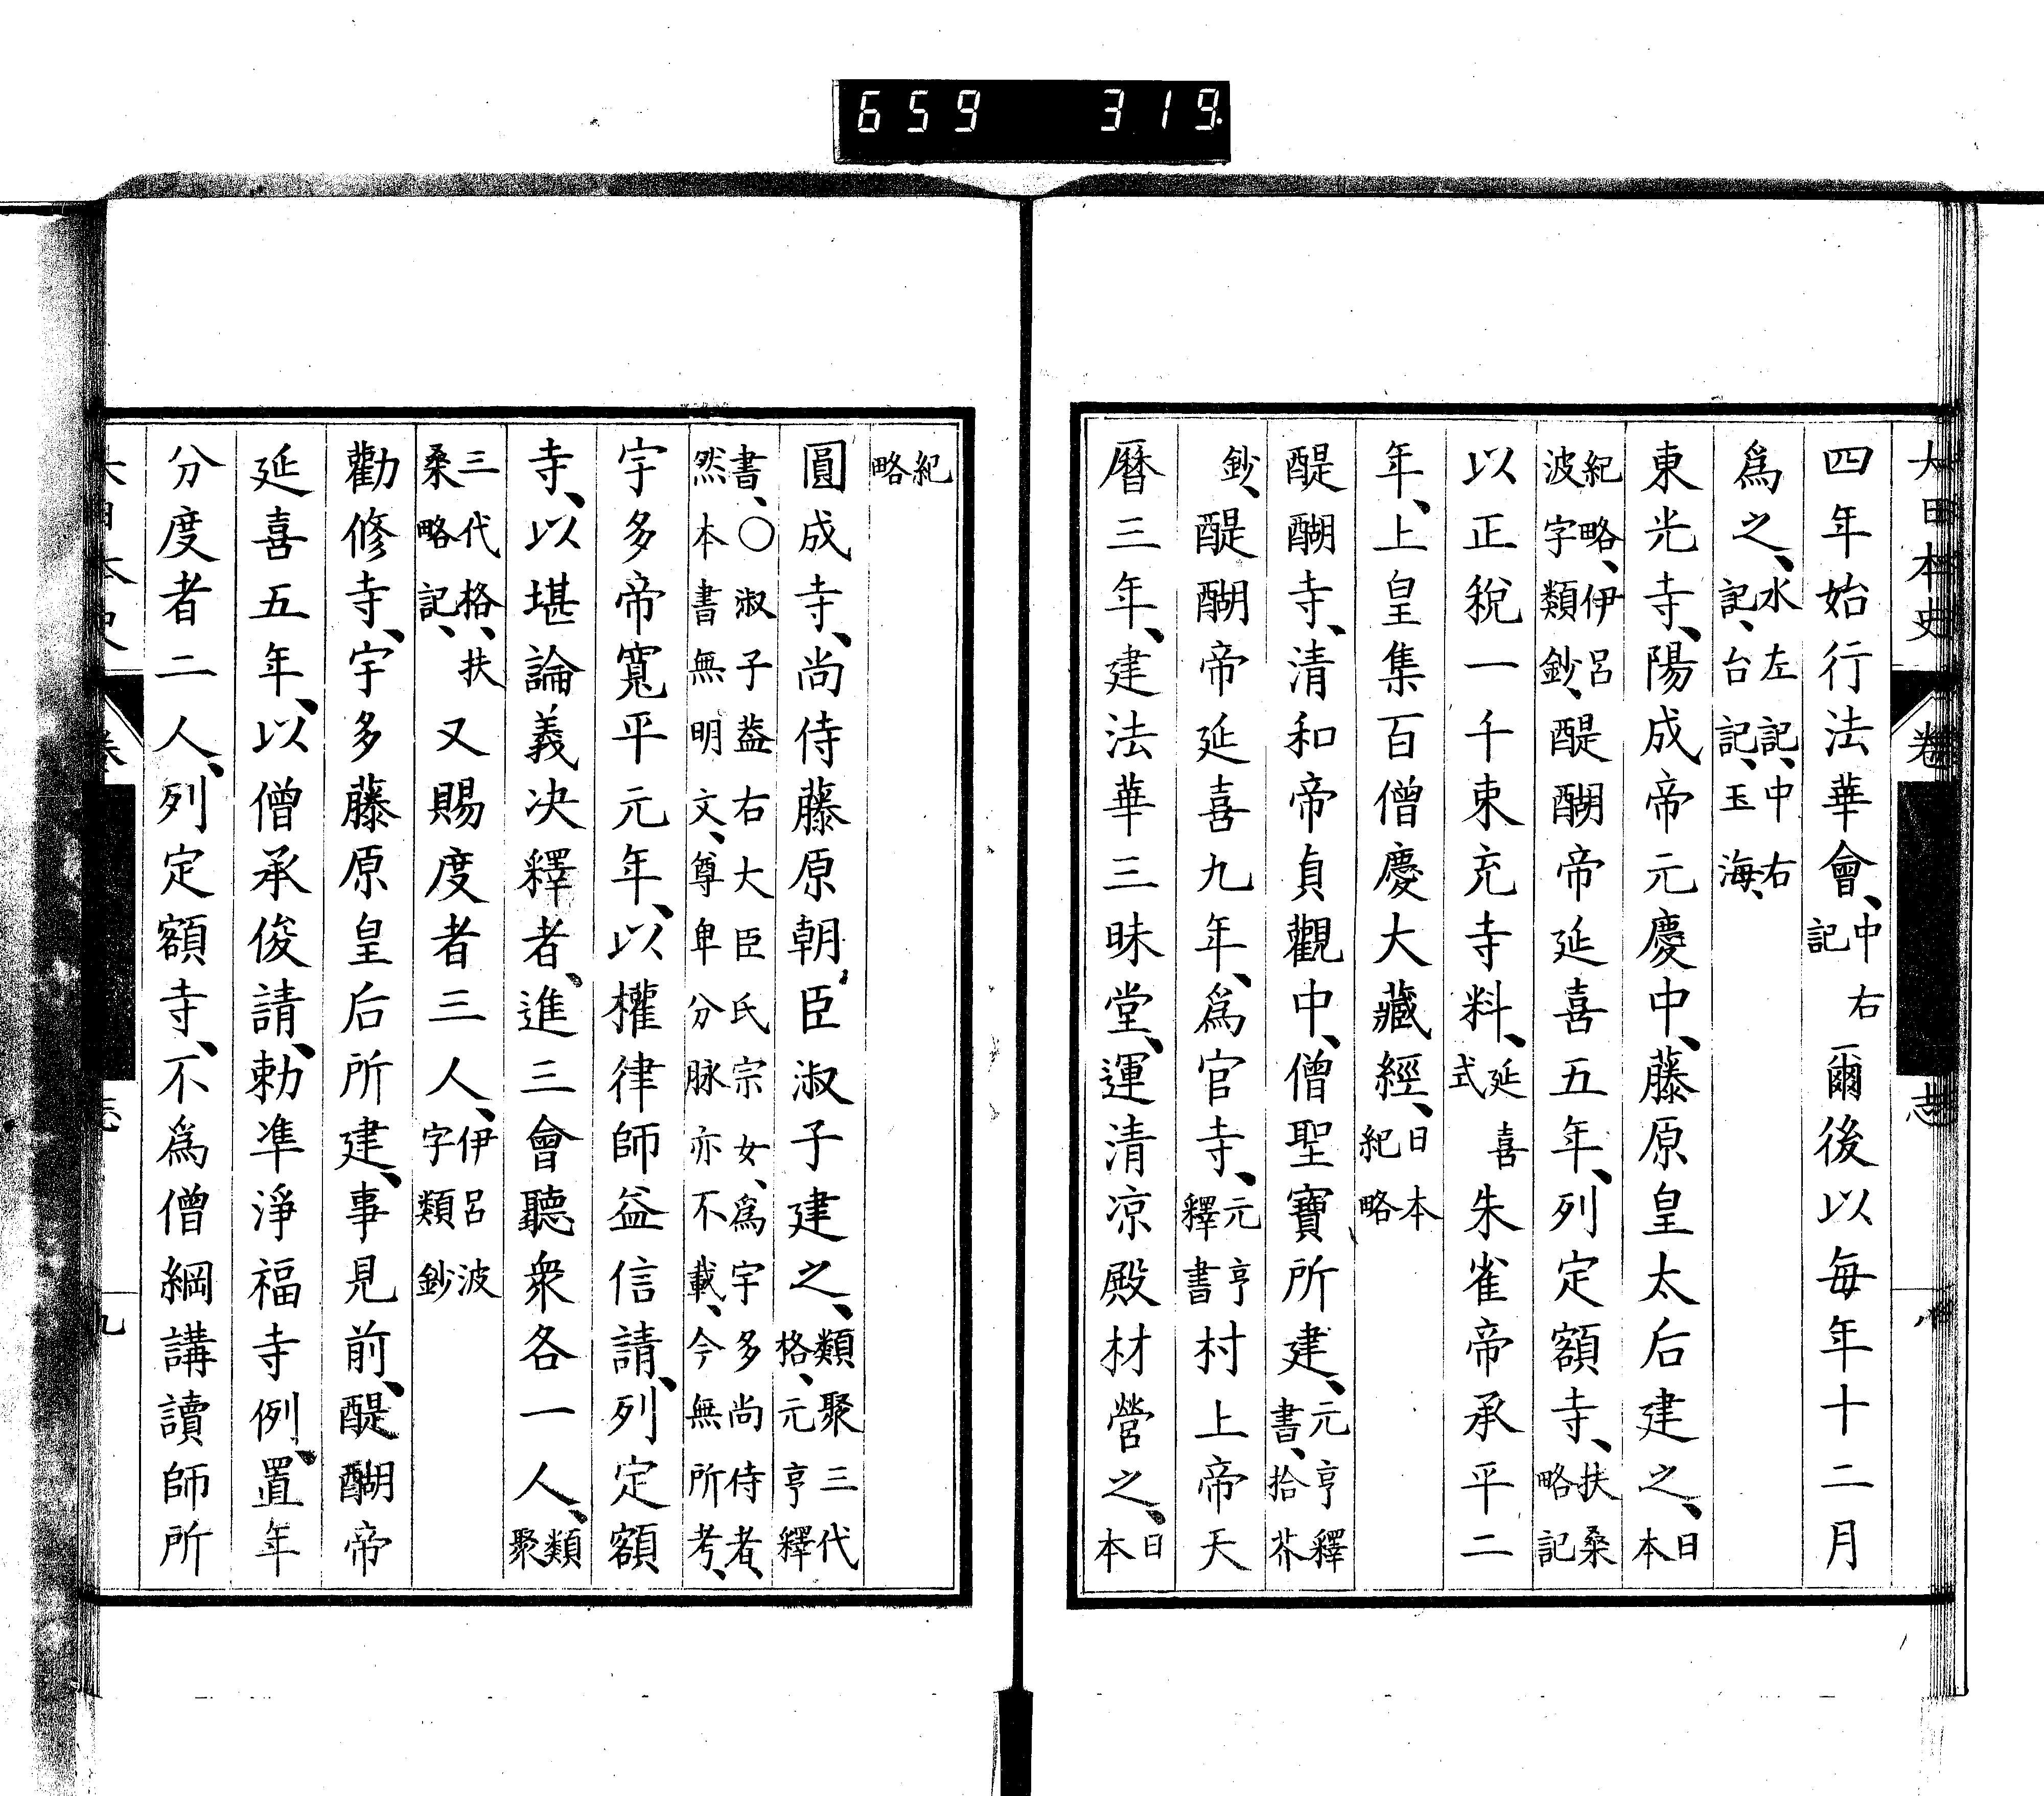 659 319
大日本史 卷 志
四年始行法華會、中右記爾後以每年十二月
爲之、水左記、中右記、台記、玉海、
東光寺、陽成帝元慶中、藤原皇太后建之、日本
紀略、伊呂波字類鈔、醍醐帝延喜五年、列定額寺、扶桑略記
以正稅一千束充寺料、延喜式朱雀帝承平二
年、上皇集百僧慶大藏經、日本紀略
醍醐寺、清和帝貞觀中、僧聖寶所建、元亨釋書、拾芥
鈔、醍醐帝延喜九年、爲官寺、元亨釋書村上帝天
曆三年、建法華三昧堂、運清凉殿材營之、日本
紀略
圓成寺、尚侍藤原朝臣淑子建之、類聚三代格、元亨釋
書、〇淑子蓋右大臣氏宗女、爲宇多尚侍者、然本書無明文、尊卑分脉亦不載、今無所考、
宇多帝寬平元年、以權律師益信請、列定額
寺、以堪論義决釋者、進三會聽衆各一人、類聚
三代格、扶桑略記、又賜度者三人、伊呂波字類鈔
勸修寺、宇多藤原皇后所建、事見前、醍醐帝
延喜五年、以僧承俊請、勅凖淨福寺例、置年
分度者二人、列定額寺、不爲僧綱講讀師所
九